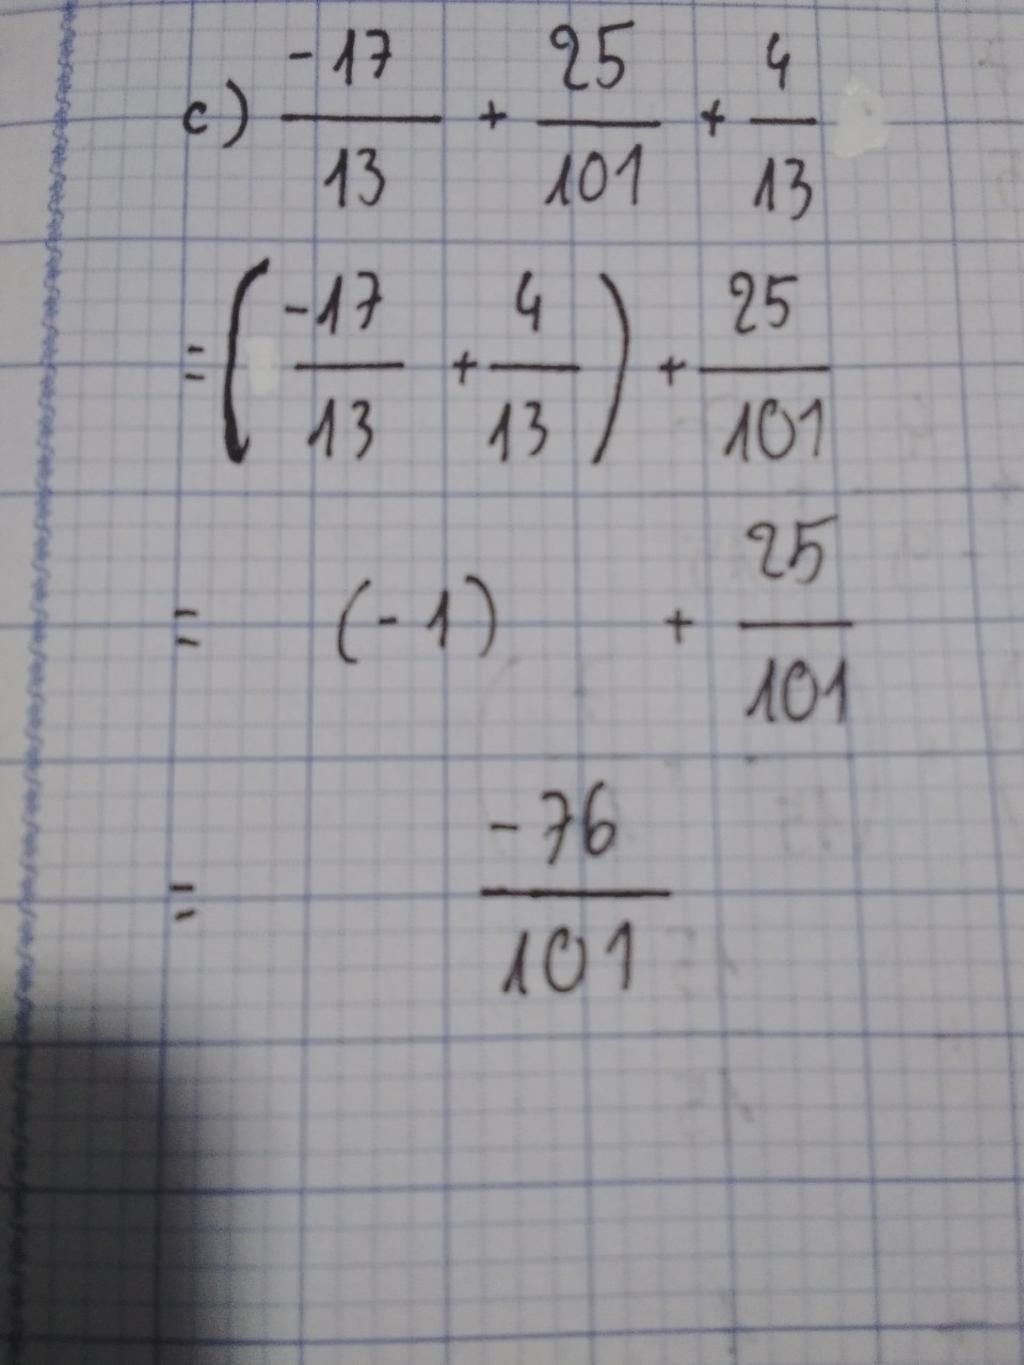 c) -17/13 + 25/101 + 4/13
= (-17/13 + 4/13) + 25/101
= (-1) + 25/101
= -76/101